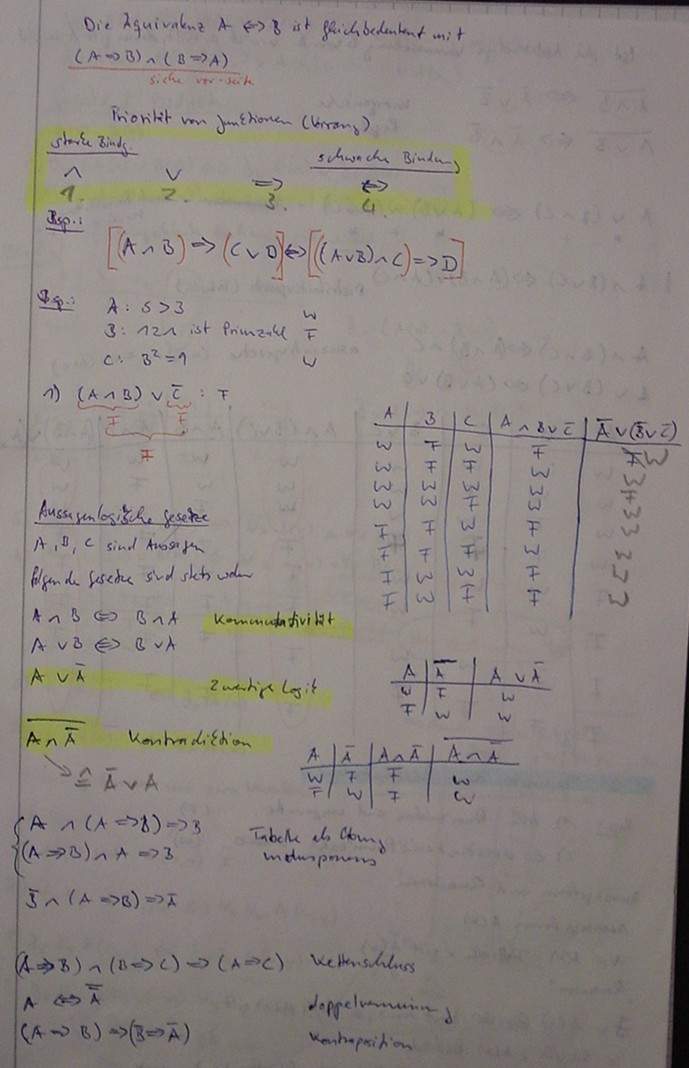 Die Äquivalenz A ⇔ B ist gleichbedeutend mit
(A ⇒ B) ∧ (B ⇒ A)
siehe vor-seite
Priorität von Junktionen (Vorrang)
starke Bindg. schwache Bindung
∧ ∨ ⇒ ⇔
1. 2. 3. 4.
Bsp.:
[(A ∧ B) ⇒ (C ∨ D)] ⇔ [((A ∨ B) ∧ C) ⇒ D]
Bsp.: A: 5 > 3 W
B: 121 ist Primzahl F
C: B² = 1 W
1) (A ∧ B) ∨ C̅ : F
F F
F
A B C A ∧ B ∨ C̅ A̅ ∨ (B̅ ∨ C̅)
W F W F W
W F F W
W W W W
W W F W
F F W F
F F F W
F W W F
F W F F
Aussagenlogische Gesetze
A, B, C sind Aussagen
folgende Gesetze sind stets wahr
A ∧ B ⇔ B ∧ A Kommutativität
A ∨ B ⇔ B ∨ A
A ∨ A̅ Zweiwertige Logik
A A̅ A ∨ A̅
W F W
F W W
A̅ ∧ A̅̅ Kontradiktion
≙ A̅ ∨ A
A A̅ A ∧ A̅ \overline{A ∧ A̅}
W F F W
F W F W
A ∧ (A ⇒ B) ⇒ B Tabelle als Übung
(A ⇒ B) ∧ A ⇒ B modusponens
B̅ ∧ (A ⇒ B) ⇒ A̅
(A ⇒ B) ∧ (B ⇒ C) ⇒ (A ⇒ C) Kettenschluss
A ⇔ A̅̅ doppelverneinung
(A ⇒ B) ⇒ (B̅ ⇒ A̅) Kontraposition